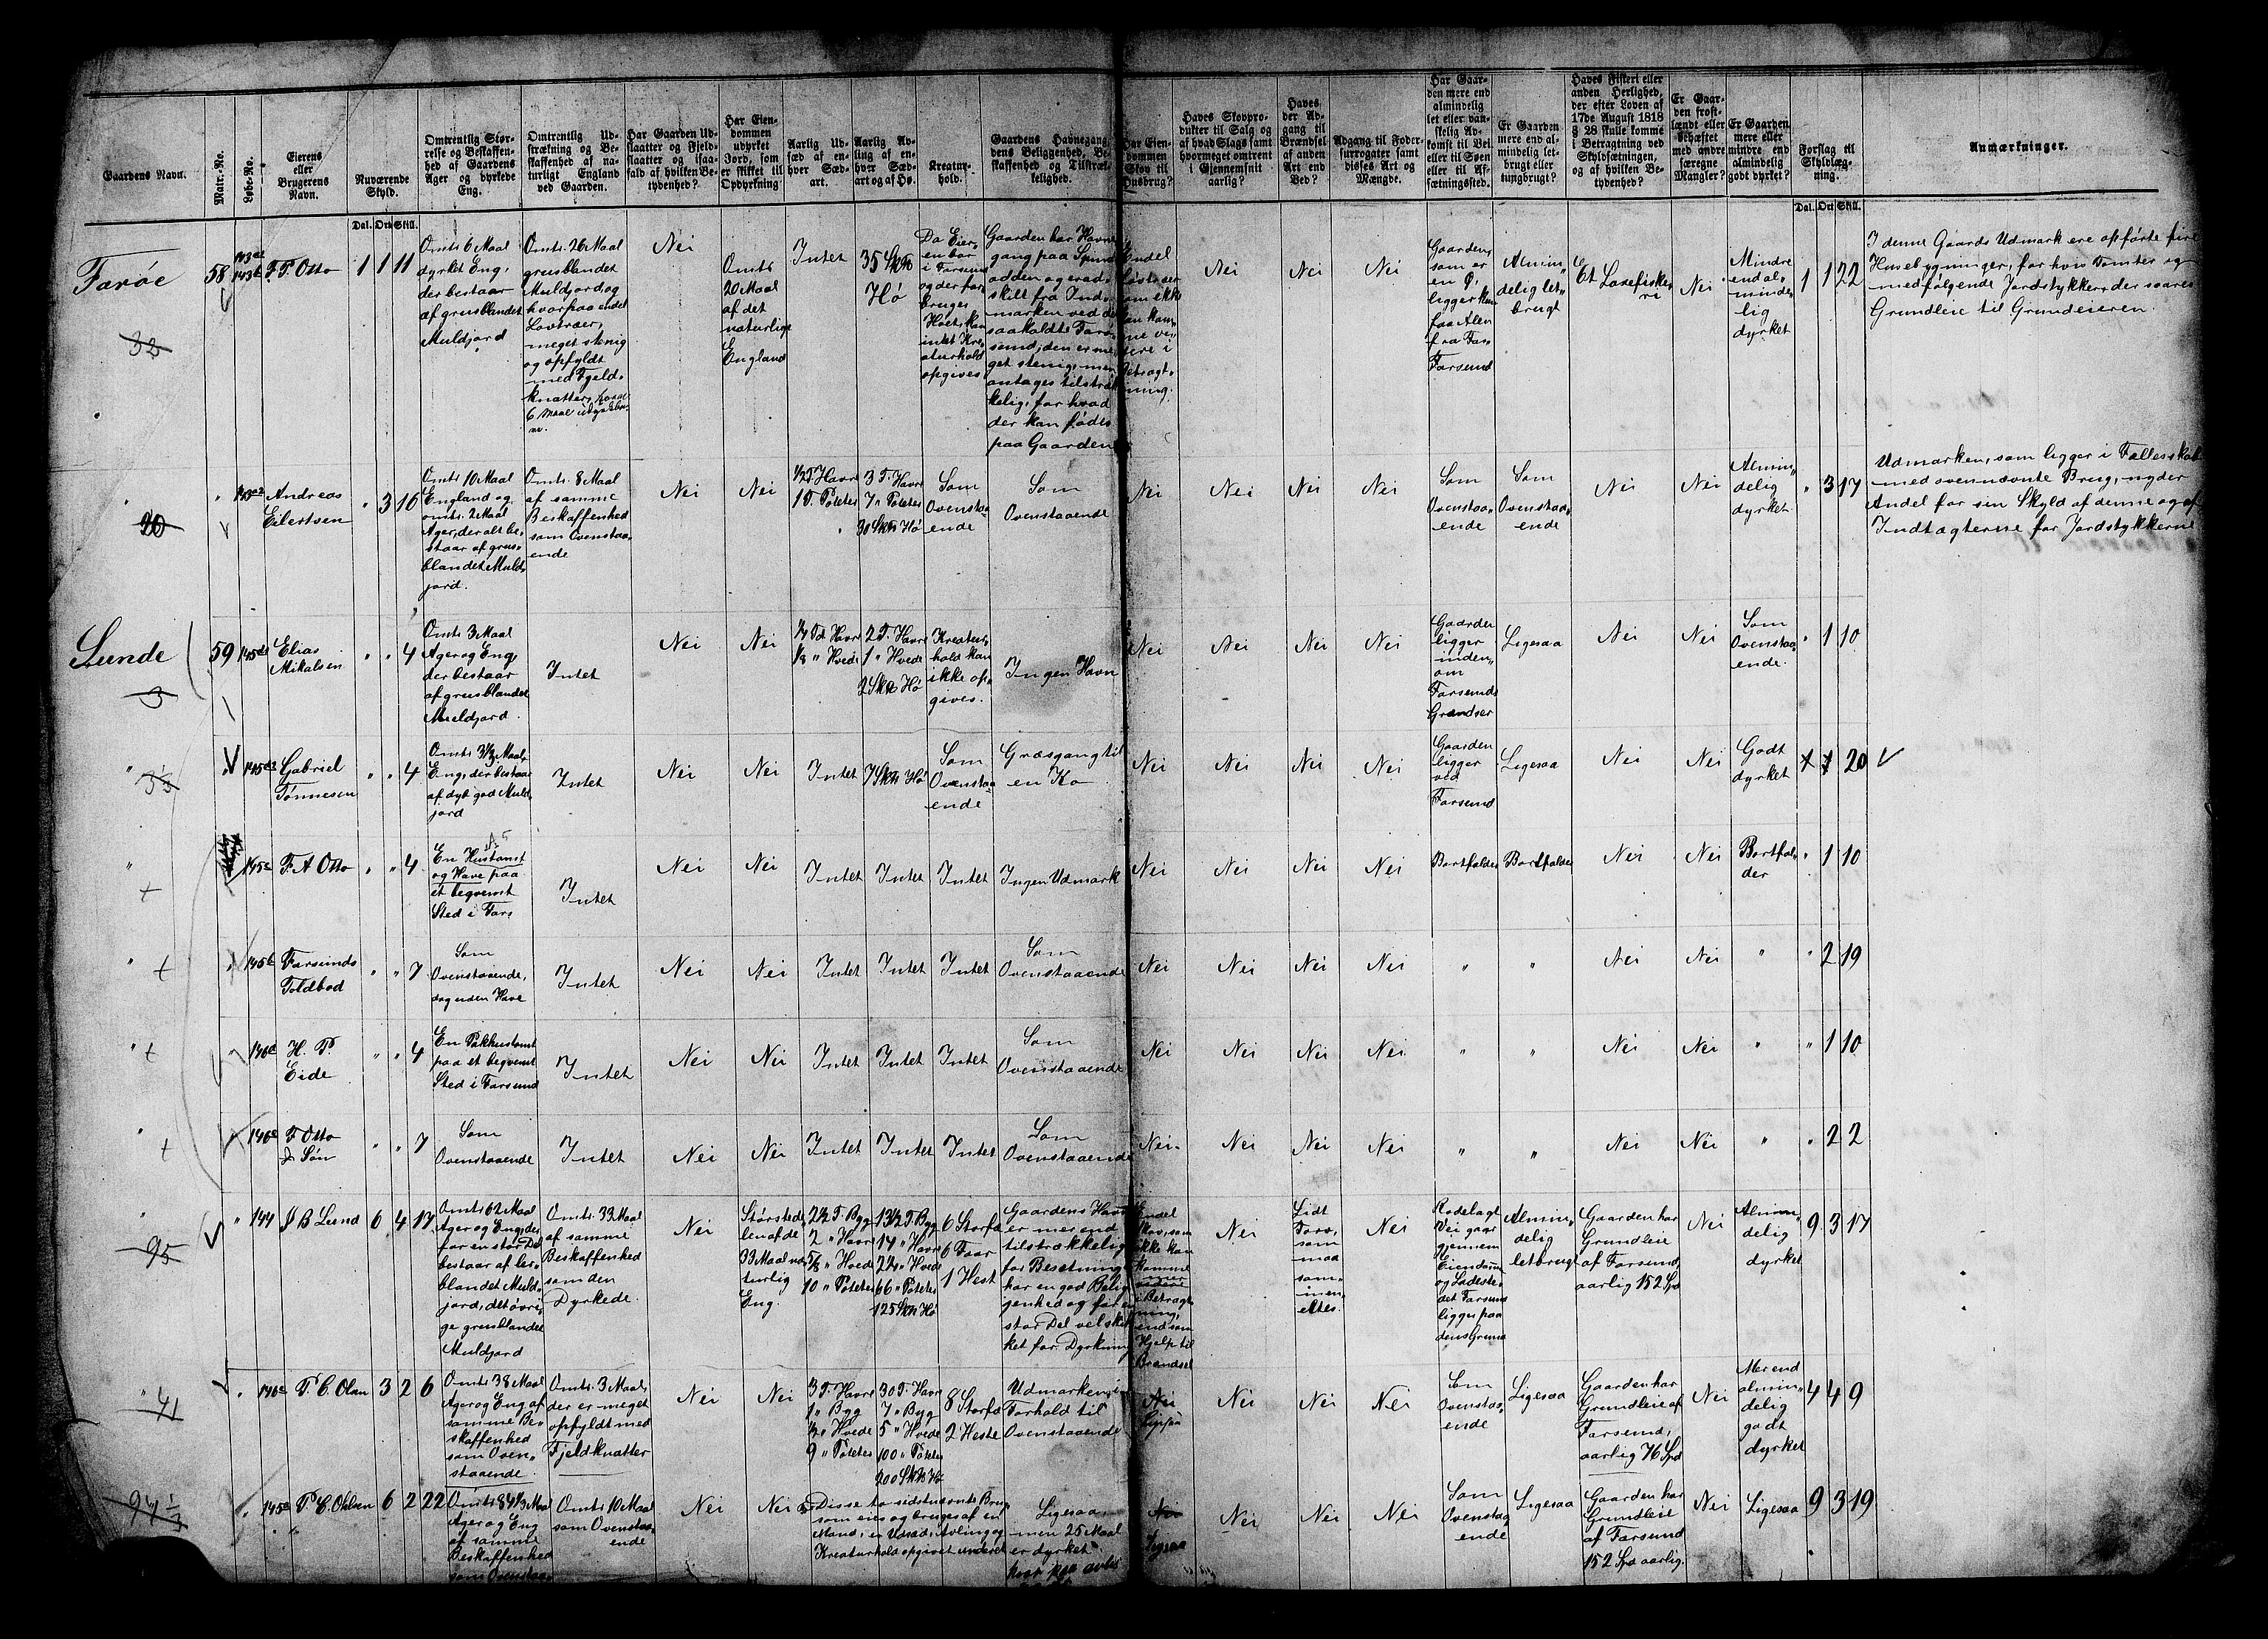 Gaardens Navn.
Matr.-No.
Løbe-No.
Eierens
eller
Brugerens
Navn.
Nuværende
Skyld.
Dal. Ort Skill.
Omtrentlig Stør-
relse og Beskaffen-
hed af Gaardens
Ager og dyrkede
Eng.
Omtrentlig Ud-
strækning og Be-
skaffenhed af na-
turligt England
ved Gaarden.
Har Gaarden Ud-
slaatter og Fjeld-
slaatter og isaa-
fald af hvilken Be-
tydenhed?
Har Eien-
dommen
udyrket
Jord, som
er skikket til
Opdyrkning
Aarlig Ud-
sæd af en-
hver Sæd-
art.
Aarlig Av-
ling af en-
hver Sæd-
art og af Hø.
Kreatur-
hold.
Gaardens Havnegang,
dens Beliggenhed, Be-
skaffenhed og Tilstræk-
kelighed.
Har Eien-
dommen
Skov til
Husbrug?
Haves Skovpro-
dukter til Salg og
af hvad Slags samt
hvormeget omtrent
i Gjennemsnit
aarlig?
Haves
der Ad-
gang til
Brændsel
af anden
Art end
Ved?
Adgang til Foder-
surrogater samt
disses Art og
Mængde.
Har Gaar-
den mere end
almindelig
let eller van-
skelig Ad-
komst til Vei
eller til Søen
eller til Af-
sætningssted.
Er Gaarden
mere end al-
mindelig let-
brugt eller
tungbrugt?
Haves Fiskeri eller
anden Herlighed,
der efter Loven af
17de August 1818
§ 28 skulle komme
i Betragtning ved
Skyldsætningen,
og af hvilken Be-
tydenhed?
Er Gaar-
den frost-
lændt eller
behæftet
med andre
særegne
Mangler?
Er Gaarden
mere eller
mindre end
almindelig
godt dyrket?
Forslag til
Skyldlæg-
ning.
Dal. Ort Skill.
Anmærkninger.
Farøe
32
58
F. P. Otto
1 1 11
Omtr. 6 Maal
dyrket Eng,
der bestaar
af grusblandet
Muldjord
Omtr. 26 Maal
grusblandet
Muldjord og
hvorpaa endel
Løvtræer,
meget stenig
og opfyldt
med Fjeld-
knatter,
Nei
Omtr
20 Maal
af det
naturlige
England
Intet
35 Sk℔
Hø
Da Eier-
en bor
i Farsund
og der for-
bruges
Høet, kan
intet Kre-
aturhold
opgives
Gaarden har Havne-
gang paa
odden og er ad-
skilt fra Ind-
marken ved det
saakaldte Farø-
sund, den er me-
get stenig, men
antages tilstræk-
kelig, for hvad
der kan fødes
paa Gaarden
Nei
Nei
Nei
Gaarden,
som er
en Ø,
ligger
Farsund
Almin-
delig let-
brugt
Et Laxefiske-
ri
Nei
Mindre
end al-
minde-
lig
dyrket
1 1 22
I denne Gaards Udmark ere opførte fire
Husebygninger, for hvis Tomter og
medfølgende Jordstykker, der svares
Grundleie til Grundeieren.
"
20
"
Andreas
Eilertsen
" 3 16
Omtr 10 Maal
England og
omtr. 2 Maal
Ager, der alt be-
staar af grus-
blandet Muld-
jord.
Omtr. 8 Maal
af samme
Beskaffenhed
som Ovenstaa-
ende
Nei
Nei
1/2 T. Havre
1 T. Poteter
3 T. Havre
7 " Poteter
30 Sk℔ Hø
Som
Ovenstaa-
ende
Som
Ovenstaaende
Nei
Nei
Nei
Nei
Som
Ovenstaa-
ende
Som
Ovenstaa-
ende
Nei
Nei
Almin-
delig
dyrket
" 3 17
Udmarken, som ligger i Fællesskab
med ovennævnte Brug, nyder
Andel for sin Skyld af denne og af
Indtægterne for Jordstykkerne
Lunde
59
Elias
Mikalsen
" " 4
Omtr 3 Maal
Ager og Eng,
der bestaar
af grusblandet
Muldjord.
Intet
Nei
Nei
1/4 Td Havre
1/8 " Hvede
2 T. Havre
1 " Hvede
2 Sk℔ Hø
Kreatur-
hold kan
ikke op-
gives.
Ingen Havn
Nei
Nei
Nei
Nei
Gaarden
ligger
inden-
om
Farsunds
Grændser
Ligesaa
Nei
Nei
Som
Ovenstaa-
ende.
" 1 10
"
Gabriel
Tønnesen
" " 4
Omtr 3 1/2 Maal
Eng, der bestaar
af dyb god Muld-
jord
Intet
Nei
Nei
Intet
7 Sk℔ Hø
Som
Ovenstaa-
ende
Græsgang til
en Ko
Nei
Nei
Nei
Nei
Gaarden
ligger
ved
Farsund
Ligesaa
Nei
Nei
Godt
dyrket
20
"
145c
F. A Otto
" " 4
En Hustomt
og Have paa
et beqvemt
Sted i Fars.
Intet
Nei
Nei
Intet
Intet
Intet
Ingen Udmark
Nei
Nei
Nei
Nei
Bortfalder
Bortfalder
Nei
Nei
Bortfal-
der
" 1 10
"
145b
Farsunds
Toldbod
" " 7
Som
Ovenstaaende,
dog uden Have
Intet
Nei
Nei
Intet
Intet
Intet
Som
Ovenstaaende
Nei
Nei
Nei
Nei
"
"
Nei
Nei
"
" 2 19
"
H. P.
Eide
" " 4
En Pakhustomt
paa et beqvemt
Sted i Farsund
Intet
Nei
Nei
Intet
Intet
Intet
Som
Ovenstaaende
Nei
Nei
Nei
Nei
"
"
Nei
Nei
"
" 1 10
"
F Otto
& Søn
" " 7
Som
Ovenstaaende
Intet
Nei
Nei
Intet
Intet
Intet
Som
Ovenstaaende
Nei
Nei
Nei
Nei
"
"
Nei
Nei
"
" 2 2
"
95
"
144
J B Lund
6 4 17
Omtr 62 Maal
Ager og Eng, der
for en stor Del
bestaar af ler-
blandet Muld-
jord, det øvri-
ge grusblandet
Muldjord
Omtr. 33 Maal
af samme
Beskaffenhed
som den
Dyrkede.
Nei
Størstede-
len af de
33 Maal na-
turlig
Eng.
2 1/2 T. Byg
2 " Havre
5/8 " Hvede
10 " Poteter
13 1/2 T. Byg
14 " Havre
" Hvede
66 " Poteter
125 Sk℔ Hø
6 Storfæ
6 Faar
1 Hest
Gaardens Havn
er mer end
tilstrækkelig
for Besetning,
har en god Belig-
genhed og for en
stor Del vel skik-
ket for Dyrkning
Endel
Skov, som
ikke kan
komme
videre
i Betragt-
ning,
end som
Hjelp til
Brændsel
Nei
Lidt
Torv,
som
maa
sam-
men
eltes.
Nei
Rodelagt
Vei gaar
gjennem
Eiendommen
og Ladeste-
det Farsund
ligger paa
dens Grund
Almin-
delig
letbrugt
Gaarden har
Grundleie
af Farsund,
aarlig 152 Spd
Nei
Almin-
delig
dyrket
9 3 17
"
41
"
P. C. Olsen
3 2 6
Omtr 38 Maal
Ager og Eng af
samme Be-
skaffenhed
som Oven-
staaende
Omtr. 3 Maal,
der er meget
opfyldt med
Fjeldknatter
Nei
Nei
3 T. Havre
1 " Byg
1/2 " Hvede
9 " Poteter
30 T. Havre
7 " Byg
5 " Hvede
100 " Poteter
200 Sk℔ Hø
8 Storfæ
2 Heste
Udmarken i
Forhold til
Ovenstaaende
Nei
Nei
Nei
Nei
Som
Ovenstaa-
ende
Ligesaa
Gaarden har
Grundleie af
Farsund,
aarlig 76 Spd
Nei
Mer end
almin-
delig
godt
dyrket
4 4 9
94 1/3
"
145a
P. C. Olsen
6 2 22
Omtr 84 1/3 Maal
Ager og Eng
af samme
Beskaffenhed
som Ovenstaa-
Omtr. 10 Maal
som Ovenstaa-
ende
Nei
Nei
Disse to sidstnævnte Brug
som eies og bruges af en
Mand, er Udsæd, Avling og
Kreaturhold opgivet under et
Ligesaa
men 25 Maal
er dyrket
Nei
Ligesaa
Nei
Nei
Nei
Som
Ovenstaa-
ende
Ligesaa
Gaarden har
Grundleie
af Farsund
152 Spd aarlig.
Nei
Ligesaa
9 3 19